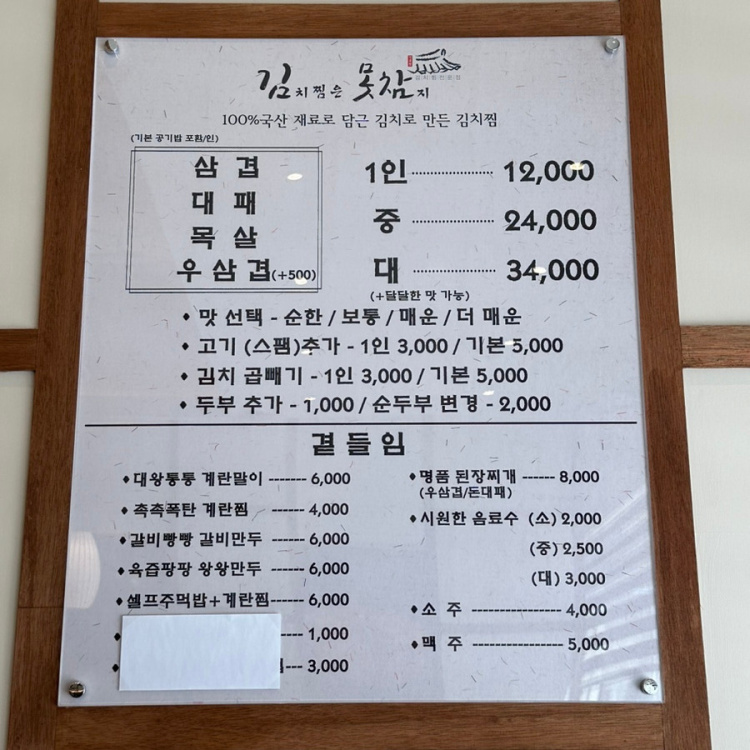 김치찜은 못참지
100%국산 재료로 담근 김치로 만든 김치찜
(기본 공기밥 포함/인)
삼겹
대패
목살
우삼겹(+500)
1인 ---------- 12,000
중 ---------- 24,000
대 ---------- 34,000
(+달달한 맛 가능)
♦ 맛 선택 - 순한 / 보통 / 매운 / 더 매운
♦ 고기 (스팸)추가 - 1인 3,000 / 기본 5,000
♦ 김치 곱빼기 - 1인 3,000 / 기본 5,000
♦ 두부 추가 - 1,000 / 순두부 변경 - 2,000
곁들임
♦ 대왕통통 계란말이 ------- 6,000
♦ 촉촉폭탄 계란찜 ------- 4,000
♦ 갈비빵빵 갈비만두 ------- 6,000
♦ 육즙팡팡 왕왕만두 ------- 6,000
♦ 셀프주먹밥+계란찜------ 6,000
♦ ---- 1,000
♦ --- 3,000
♦ 명품 된장찌개 ------ 8,000
(우삼겹/돈대패)
♦ 시원한 음료수 (소) 2,000
(중) 2,500
(대) 3,000
♦ 소 주 ---------------- 4,000
♦ 맥 주 ---------------- 5,000